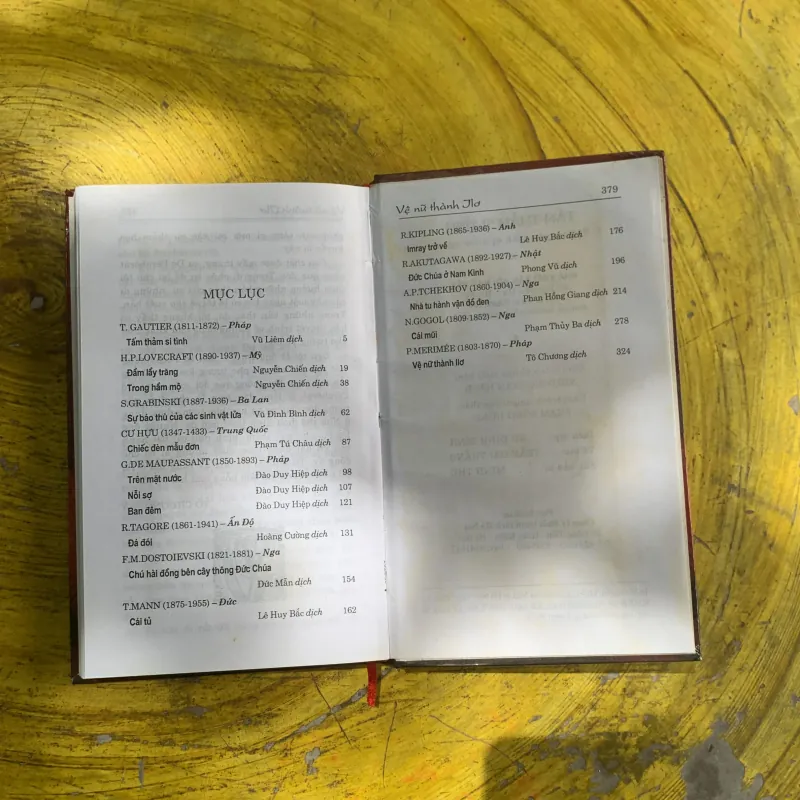 MỤC LỤC
T. GAUTIER (1811-1872) – Pháp
Tấm thảm si tình Vũ Liêm dịch 5
H.P.LOVECRAFT (1890-1937) – Mỹ
Đầm lầy trăng Nguyễn Chiến dịch 19
Trong hầm mộ Nguyễn Chiến dịch 38
S.GRABINSKI (1887-1936) – Ba Lan
Sự báo thù của các sinh vật lửa Vũ Đình Bình dịch 62
CƯ HỰU (1347-1433) – Trung Quốc
Chiếc đèn mẫu đơn Phạm Tú Châu dịch 87
G.DE MAUPASSANT (1850-1893) – Pháp
Trên mặt nước Đào Duy Hiệp dịch 98
Nỗi sợ Đào Duy Hiệp dịch 107
Ban đêm Đào Duy Hiệp dịch 121
R.TAGORE (1861-1941) – Ấn Độ
Đá đói Hoàng Cường dịch 131
F.M.DOSTOIEVSKI (1821-1881) – Nga
Chú hài đồng bên cây thông Đức Chúa
Đức Mẫn dịch 154
T.MANN (1875-1955) – Đức
Cái tủ Lê Huy Bắc dịch 162
Vệ nữ thành Ilơ 379
R.KIPLING (1865-1936) – Anh
Imray trở về Lê Huy Bắc dịch 176
R.AKUTAGAWA (1892-1927) – Nhật
Đức Chúa ở Nam Kinh Phong Vũ dịch 196
A.P.TCHEKHOV (1860-1904) – Nga
Nhà tu hành vận đồ đen Phan Hồng Giang dịch 214
N.GOGOL (1809-1852) – Nga
Cái mũi Phạm Thủy Ba dịch 278
P.MERIMÉE (1803-1870) – Pháp
Vệ nữ thành Ilơ Tô Chương dịch 324